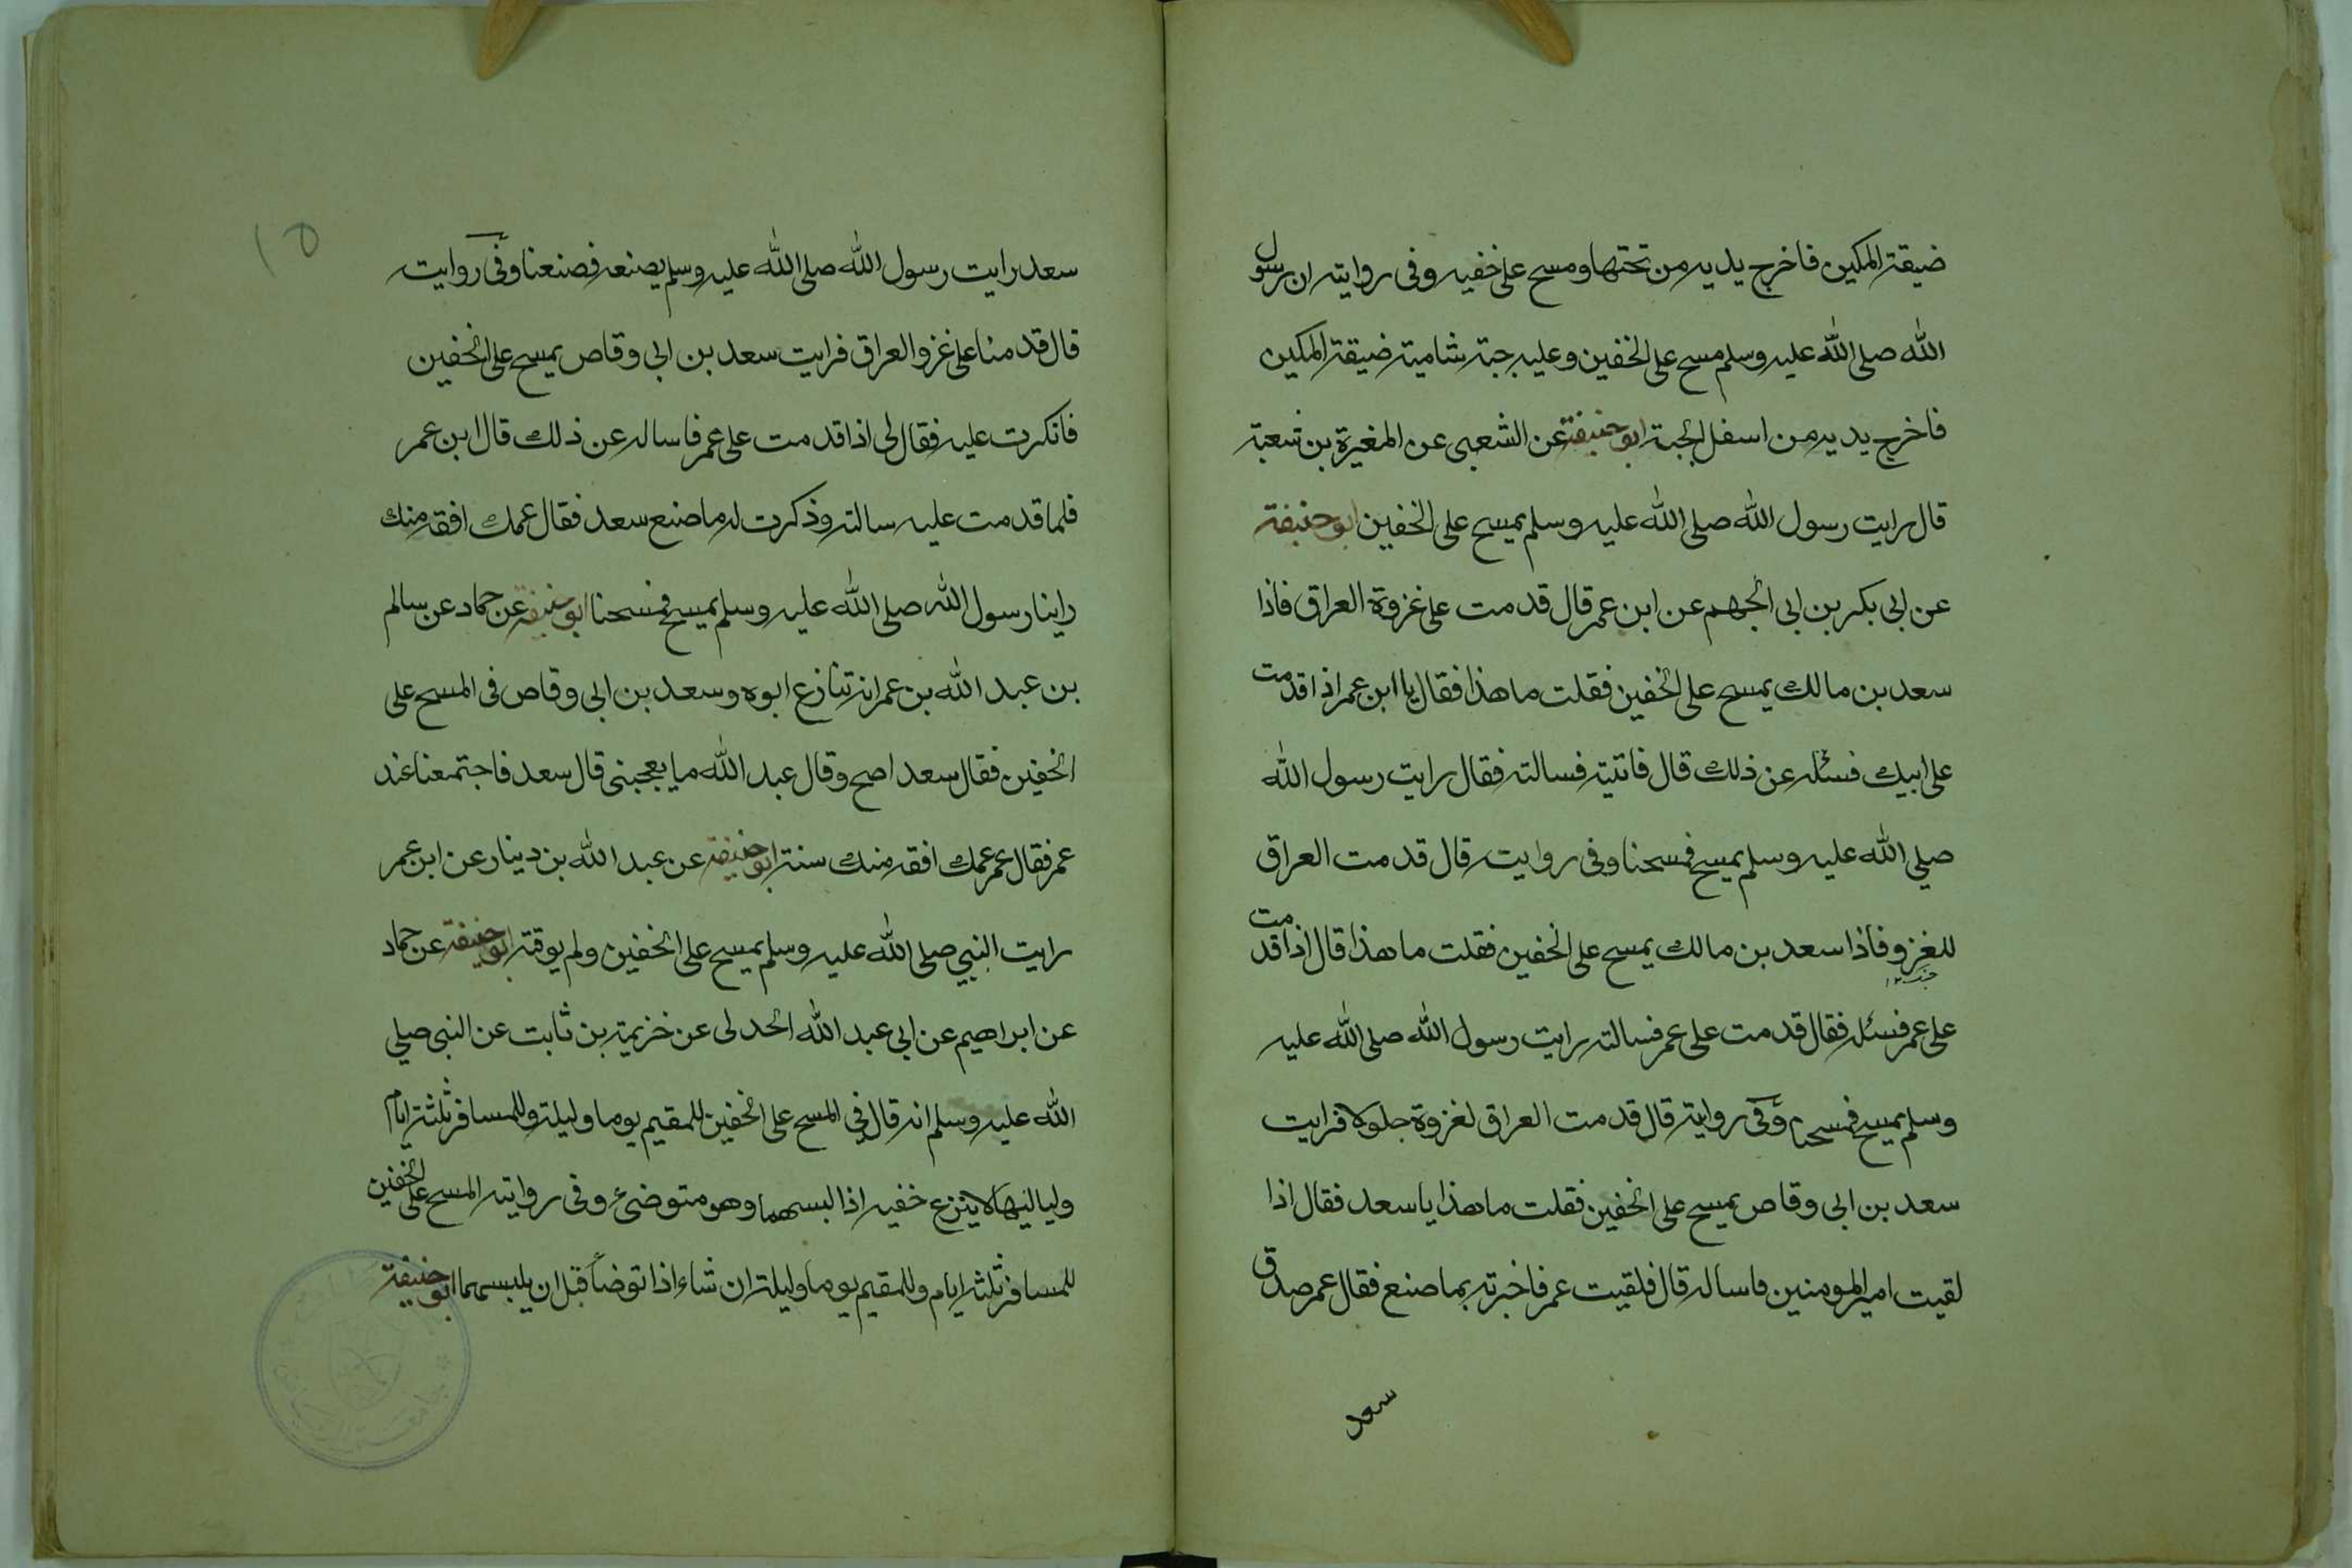 ضيقة المكين فاخرج يديه من تحتها ومسح على خفيه وفى رواية ان رسول
الله صلى الله عليه وسلم مسح على الخفين وعليه جبة شامية ضيقة المكين
فاخرج يديه من اسفل الجبة ابو حنيفة عن الشعبى عن المغيرة بن شعبة
قال رايت رسول الله صلى الله عليه وسلم يمسح على الخفين ابو حنيفة
عن ابى بكر بن ابى الجهم عن ابن عمر قال قدمت على غزوة العراق فاذا
سعد بن مالك يمسح على الخفين فقلت ما هذا فقال يا ابن عمر اذا قدمت
على ابيك فسئله عن ذلك قال فاتيته فسالته فقال رايت رسول الله
صلي الله عليه وسلم يمسح فمسحنا وفى روايت قال قدمت العراق
للغزو فاذا سعد بن مالك يمسح على الخفين فقلت ما هذا قال اذا قدمت
على عمر فسئله فقال قدمت على عمر فسالته رايت رسول الله صلى الله عليه
وسلم يمسح فمسحنا وفى رواية قال قدمت العراق لغزوة جلولا فرايت
سعد بن ابى وقاص يمسح على الخفين فقلت ما هذا يا سعد فقال اذا
لقيت امير المومنين فاساله قال فلقيت عمر فاخبرته بما صنع فقال عمر صدق
سعد
١٥
سعد رايت رسول الله صلى الله عليه وسلم يصنعه فصنعنا وفى روايت
قال قدمنا على غزو العراق فرايت سعد بن ابى وقاص يمسح على الخفين
فانكرت عليه فقال لى اذا قدمت على عمر فاساله عن ذلك قال ابن عمر
فلما قدمت عليه سالته وذكرت له ما صنع سعد فقال عمك افقه منك
راينا رسول الله صلى الله عليه وسلم يمسح فمسحنا ابو حنيفة عن حماد عن سالم
بن عبد الله بن عمر انه تنازع ابوه وسعد بن ابى وقاص فى المسح على
الخفين فقال سعد امسح وقال عبد الله ما يعجبنى قال سعد فاجتمعنا عند
عمر فقال عمر عمك افقه منك سنة ابو حنيفة عن عبد الله بن دينار عن ابن عمر
رايت النبي صلى الله عليه وسلم يمسح على الخفين ولم يوقته ابو حنيفة عن حماد
عن ابراهيم عن ابى عبد الله الجدلى عن خزيمة بن ثابت عن النبى صلي
الله عليه وسلم انه قال في المسح على الخفين للمقيم يوما وليلة وللمسافر ثلثة ايام
ولياليها لا ينزع خفيه اذا لبسهما وهو متوضئ وفى رواية المسح على الخفين
للمسافر ثلثة ايام وللمقيم يوما وليلة ان شاء اذا توضأ قبل ان يلبسهما ابو حنيفة